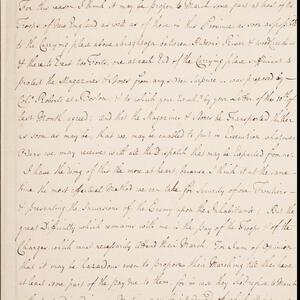 For this reason I think it may be proper to March some part at least of the
Troops of New England as well as of those in this Province as soon as possible
to the Carrying place above Saraghtoga between Hudsons River & Wood creek
& there to Erect two Forts, one at each End of the Carrying place, sufficient to
protect the Magazines & Stores from any sudden Surprise, as was proposed by
Col. Roberts at Boston, & to which you to by your motion of the 10th of
last Month agreed: and that the Magazines & Stores be Transported thither
as soon as may be, that we may be enabled to put in Execution whatever
Orders we may receive with all the Dispatch that may be Expected from us.
I have the doing of this the more at heart, because I think it at the same
time the most effectual Method we can take for Security of our Frontiers
& preventing the Incursions of the Enemy upon the Inhabitants: But the
great Difficulty which remains with me is the Pay of the Troops & of the
Charges which must necessarily attend their March. For I am of Opinion
that it may be hazardous even to propose their Marching till they have
at least some part of the Pay due to them, for in case they should refuse to March